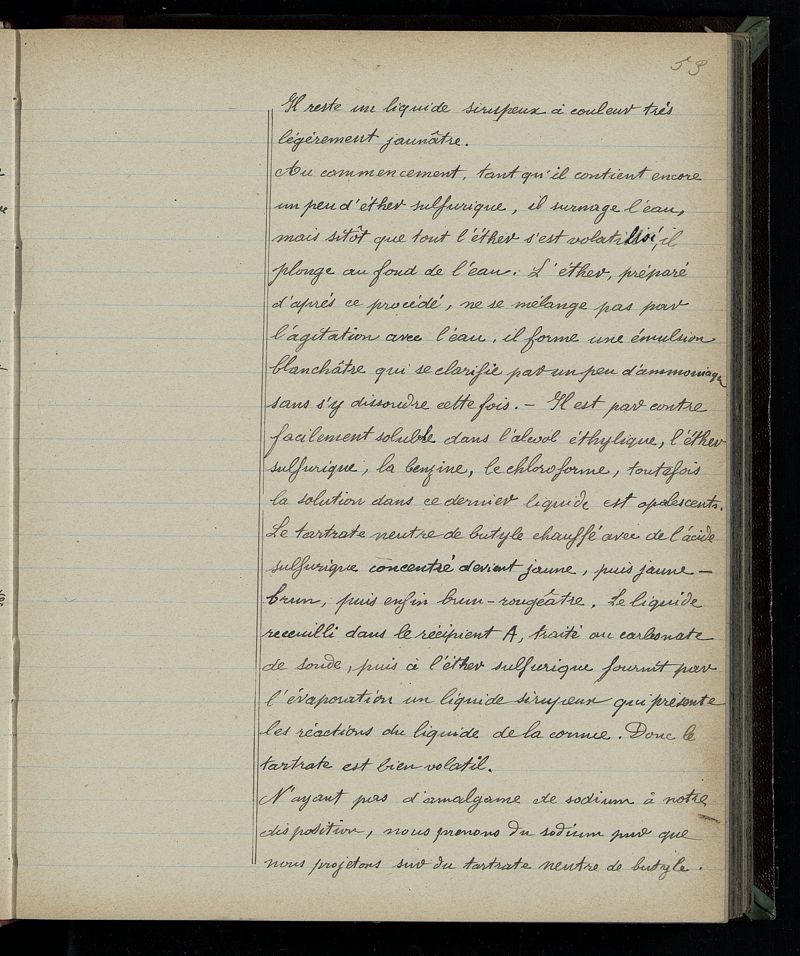 53
Il reste un liquide sirupeux à couleur très
légèrement jaunâtre.
Au commencement, tant qu'il contient encore
un peu d'éther sulfurique, il surnage l'eau,
mais sitôt que tout l'éther s'est volatilisé, il
plonge au fond de l'eau. L'éther, préparé
d'après ce procédé, ne se mélange pas par
l'agitation avec l'eau, il forme une émulsion
blanchâtre qui se clarifie par un peu d'ammoniaque
sans s'y dissoudre cette fois. — Il est par contre
facilement soluble dans l'alcool éthylique, l'éther
sulfurique, la benzine, le chloroforme, toutefois
la solution dans ce dernier liquide est opalescente.
Le tartrate neutre de butyle chauffé avec de l'acide
sulfurique concentré devient jaune, puis jaune—
brun, puis enfin brun-rougeâtre. Le liquide
receuilli dans le récipient A, traité au carbonate
de soude, puis à l'éther sulfurique fournit par
l'évaporation un liquide sirupeux qui présente
les réactions du liquide de la cornue. Donc le
tartrate est bien volatil.
N'ayant pas d'amalgame de sodium à notre
disposition, nous prenons du sodium pur que
nous projetons sur du tartrate neutre de butyle.